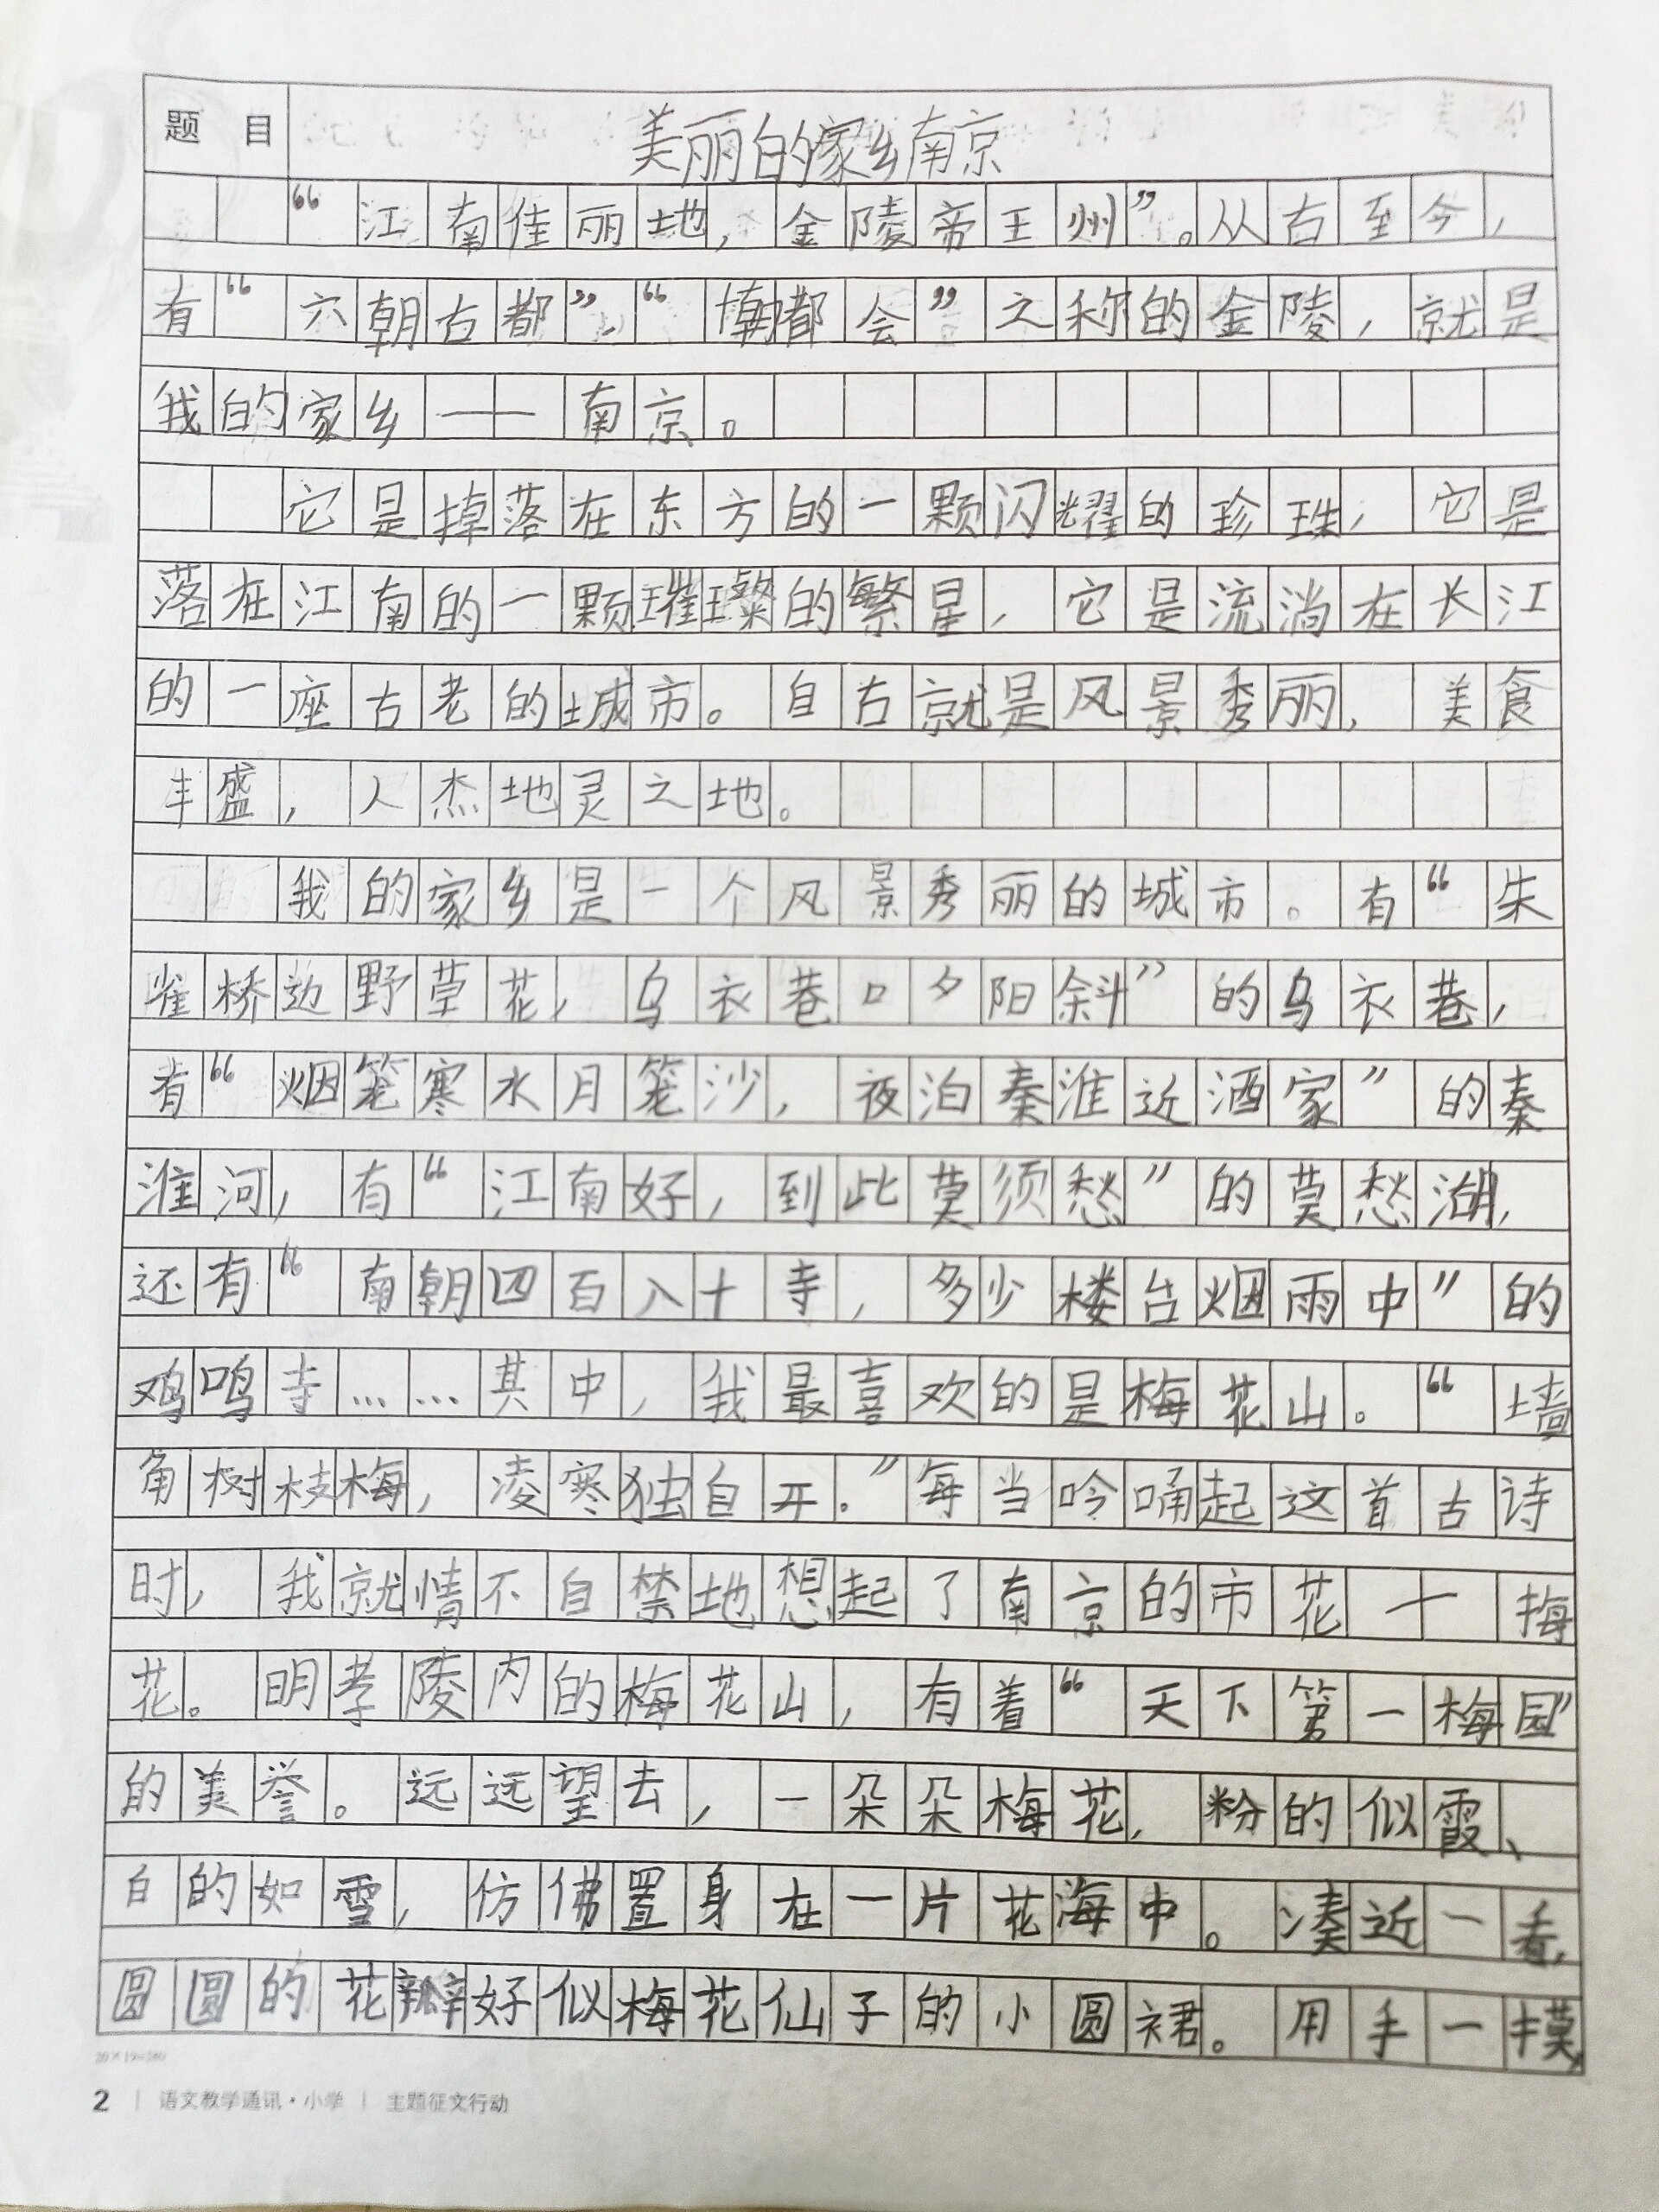 题 目 美丽的家乡南京
“江南佳丽地，金陵帝王州”。从古至今，
有“六朝古都”，“朝都会”之称的金陵，就是
我的家乡——南京。
它是掉落在东方的一颗闪耀的珍珠，它是
落在江南的一颗璀璨的繁星，它是流淌在长江
的一座古老的城市。自古就是风景秀丽，美食
丰盛，人杰地灵之地。
我的家乡是一个风景秀丽的城市。有“朱
雀桥边野草花，乌衣巷口夕阳斜”的乌衣巷，
有“烟笼寒水月笼沙，夜泊秦淮近酒家”的秦
淮河，有“江南好，到此莫须愁”的莫愁湖，
还有“南朝四百八十寺，多少楼台烟雨中”的
鸡鸣寺……其中，我最喜欢的是梅花山。“墙
角树枝梅，凌寒独自开.”每当吟诵起这首古诗
时，我就情不自禁地想起了南京的市花——梅
花。明孝陵内的梅花山，有着“天下第一梅园”
的美誉。远远望去，一朵朵梅花，粉的似霞、
白的如雪，仿佛置身在一片花海中。凑近一看，
圆圆的花瓣好似梅花仙子的小圆裙。用手一摸，
20×19=380
2 | 语文教学通讯·小学 | 主题征文行动